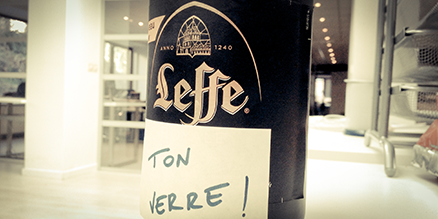 ANNO 1240
Leffe
TON
VERRE !